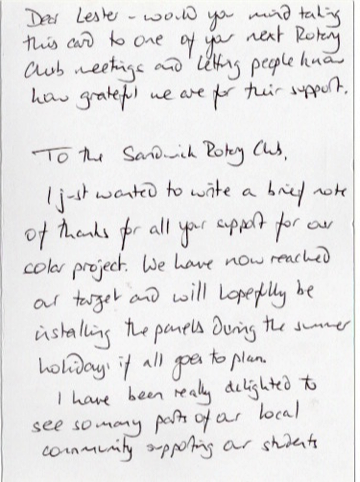 Dear Lester - would you mind taking
this card to one of your next Rotary
Club meetings and letting people know
how grateful we are for their support.
To the Sandwich Rotary Club,
I just wanted to write a brief note
of thanks for all your support for our
solar project. We have now reached
our target and will hopefully be
installing the panels during the summer
holidays if all goes to plan.
I have been really delighted to
see so many parts of our local
community supporting our students